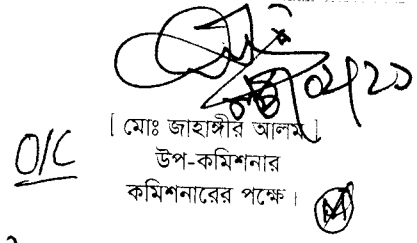 [ মোঃ জাহাঙ্গীর আলম ]
O/C
উপ-কমিশনার
কমিশনারের পক্ষে।